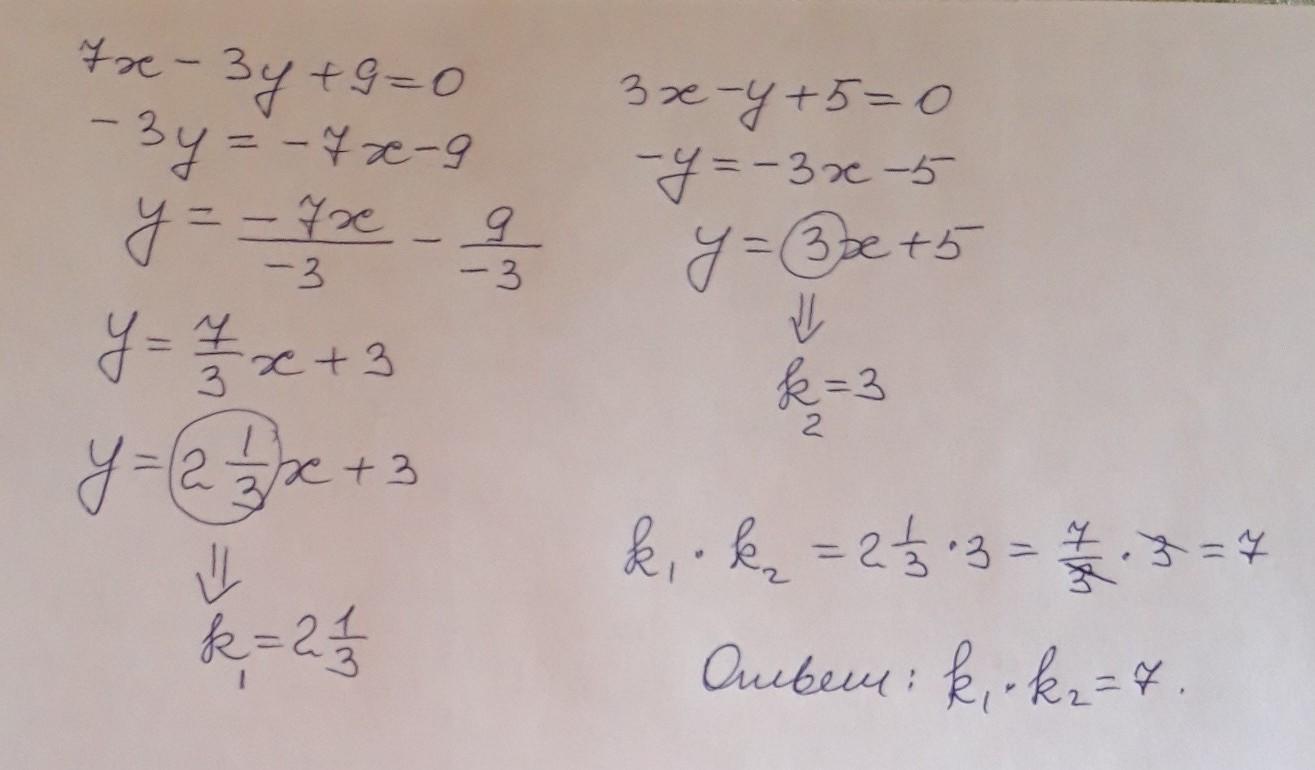 7x - 3y + 9 = 0
-3y = -7x - 9
y = -7x/-3 - 9/-3
y = 7/3 x + 3
y = 2 1/3 x + 3
⇓
k₁ = 2 1/3
3x - y + 5 = 0
-y = -3x - 5
y = 3x + 5
⇓
k₂ = 3
k₁ · k₂ = 2 1/3 · 3 = 7/3 · 3 = 7
Ответ: k₁ · k₂ = 7.